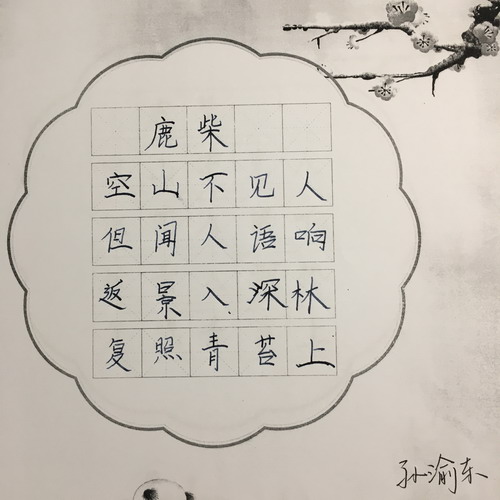 鹿柴
空山不见人
但闻人语响
返景入深林
复照青苔上
孙渝东